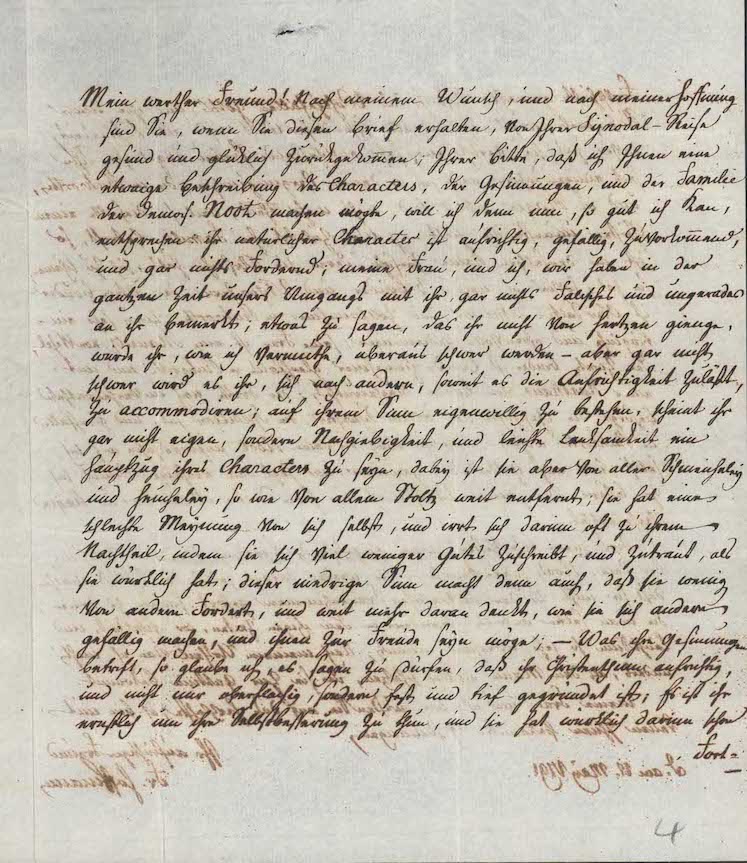 Mein werther Freund! Nach meinem Wunsch, und nach meiner Hoffnung
sind Sie, wenn Sie diesen Brief erhalten, von Ihrer Synodal-Reise
gesund und glüklich zurückgekommen; Ihrer Bitte, daß ich Ihnen eine
etwaige Beschreibung des Characters, der Gesinnungen, und der Familie
der Demois. Noot machen mögte, will ich denn nun, so gut ich kan,
entsprechen: ihr naturlicher Character ist aufrichtig, gefällig, zuvorkommend,
und gar nichts fordernd, meine Frau, und ich, wir haben in der
gantzen Zeit unsers Umgangs mit ihr, gar nichts falsches und ungerades
an ihr bemerkt; etwas zu sagen, das ihr nicht von Hertzen gienge,
wurde ihr, wie ich vermuthe, uberaus schwer werden – aber gar nicht
schwer wird es ihr, sich nach andern, soweit es die Aufrichtigkeit zuläßt,
zu accommodiren; auf ihrem Sinn eigenwillig zu bestehen, scheint ihr
gar nicht eigen, sondern Nachgiebigkeit, und leichte Lenksamkeit ein
Hauptzug ihres Characters zu seyn, dabey ist sie aber von aller Schmeicheley
und Heucheley, so wie von allem Stoltz weit entfernt; sie hat eine
schlechte Meynung von sich selbst, und irret sich darum oft zu ihrem
Nachtheil, indem sie sich viel weniger Gutes zuschreibt, und zutraut, als
sie würklich hat; dieser niedrige Sinn macht denn auch, daß sie wenig
von andern fordert, und weit mehr daran denkt, wie sie sich andern
gefällig machen, und ihnen zur Freude seyn möge; – Was ihre Gesinnungen
betrift, so glaube ich, es sagen zu dürfen, daß ihr Christenthum aufrichtig,
und nicht nur oberflachig, sondern fest und tief gegrundet ist; Es ist ihr
ernstlich um ihre Selbstbesserung zu thun, und sie hat würklich darin schon
Fort=
4